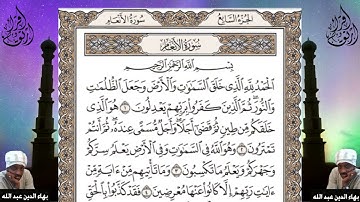 سُورَةُ الأَنْعَامِ
الجُزْءُ السَّابِعُ
سُورَةُ الأَنْعَامِ
بِسْمِ اللَّهِ الرَّحْمَٰنِ الرَّحِيمِ
الْحَمْدُ لِلَّهِ الَّذِي خَلَقَ السَّمَٰوَٰتِ وَالْأَرْضَ وَجَعَلَ الظُّلُمَٰتِ
وَالنُّورَ ثُمَّ الَّذِينَ كَفَرُوا بِرَبِّهِمْ يَعْدِلُونَ ١ هُوَ الَّذِي
خَلَقَكُم مِّن طِينٍ ثُمَّ قَضَىٰ أَجَلًا وَأَجَلٌ مُّسَمًّى عِندَهُ ثُمَّ أَنتُمْ
تَمْتَرُونَ ٢ وَهُوَ اللَّهُ فِي السَّمَٰوَٰتِ وَفِي الْأَرْضِ يَعْلَمُ سِرَّكُمْ
وَجَهْرَكُمْ وَيَعْلَمُ مَا تَكْسِبُونَ ٣ وَمَا تَأْتِيهِم مِّنْ ءَايَةٍ مِّنْ
ءَايَٰتِ رَبِّهِمْ إِلَّا كَانُوا عَنْهَا مُعْرِضِينَ ٤ فَقَدْ كَذَّبُوا بِالْحَقِّ
بهاء الدين عبد الله
بهاء الدين عبد الله